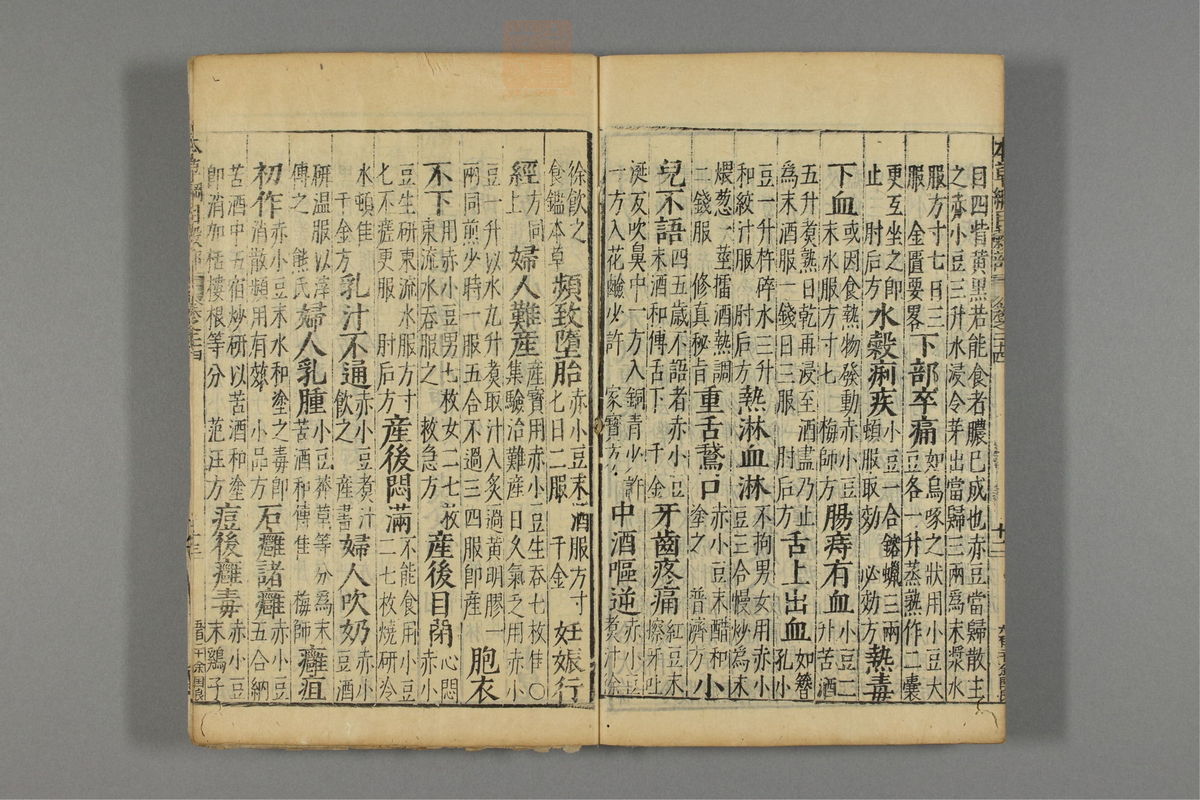 目四眥黃黑若能食者膿已成也赤豆當歸散主
之赤小豆三升水浸令芽出當歸三兩為末漿水
服方寸匕日三服 金匱要畧 下部卒痛 如鳥啄之狀用小豆大豆各一升蒸熱作二囊
更互坐之即止 肘后方 水穀痢疾 小豆一合鎔蠟三兩頓服取効 必効方 熱毒
下血 或因食熱物發動赤小豆末水服方寸匕 梅師方 腸痔有血 小豆二升苦酒
五升煮熟日乾再浸至酒盡乃止為末酒服一錢日三服 肘后方 舌上出血 如簪孔小
豆一升杵碎水三升和絞汁服 肘后方 熱淋血淋 不拘男女用赤小豆三合慢炒為末
煨葱一莖擂酒熱調二錢服 修真秘旨 重舌鵞口 赤小豆末醋和塗之 普濟方 小
兒不語 四五歲不語者赤小豆末酒和傅舌下 千金 牙齒疼痛 紅豆末擦牙吐
涎及吹鼻中一方入銅青少許一方入花鹼少許 家寶方 中酒嘔逆 赤小豆煮汁徐
徐飲之 食鑑本草 頻致墮胎 赤小豆末酒服方寸匕日二服 千金 妊娠行
經 方同上 婦人難產 產寶用赤小豆生吞七枚佳○集驗治難產日久氣乏用赤小
豆一升以水九升煮取汁入炙過黃明膠一兩同煎少時一服五合不過三四服即產 胞衣
不下 用赤小豆男七枚女二七枚東流水吞服之 救急方 產後目閉 心悶赤小
豆生研東流水服方寸匕不瘥更服 肘后方 產後悶滿 不能食用小豆二七枚燒研冷
水頓佳 千金方 乳汁不通 赤小豆煮汁飲之 產書 婦人吹奶 赤小豆酒
研溫服以滓傅之 熊氏 婦人乳腫 小豆莽草等分為末苦酒和傅佳 梅師 癰疽
初作 赤小豆末水和塗之毒即消散頻用有効 小品方 石癰諸癰 赤小豆五合納
苦酒中五宿炒研以苦酒和塗即消加栝樓根等分 范汪方 痘後癰毒 赤小豆末鷄子